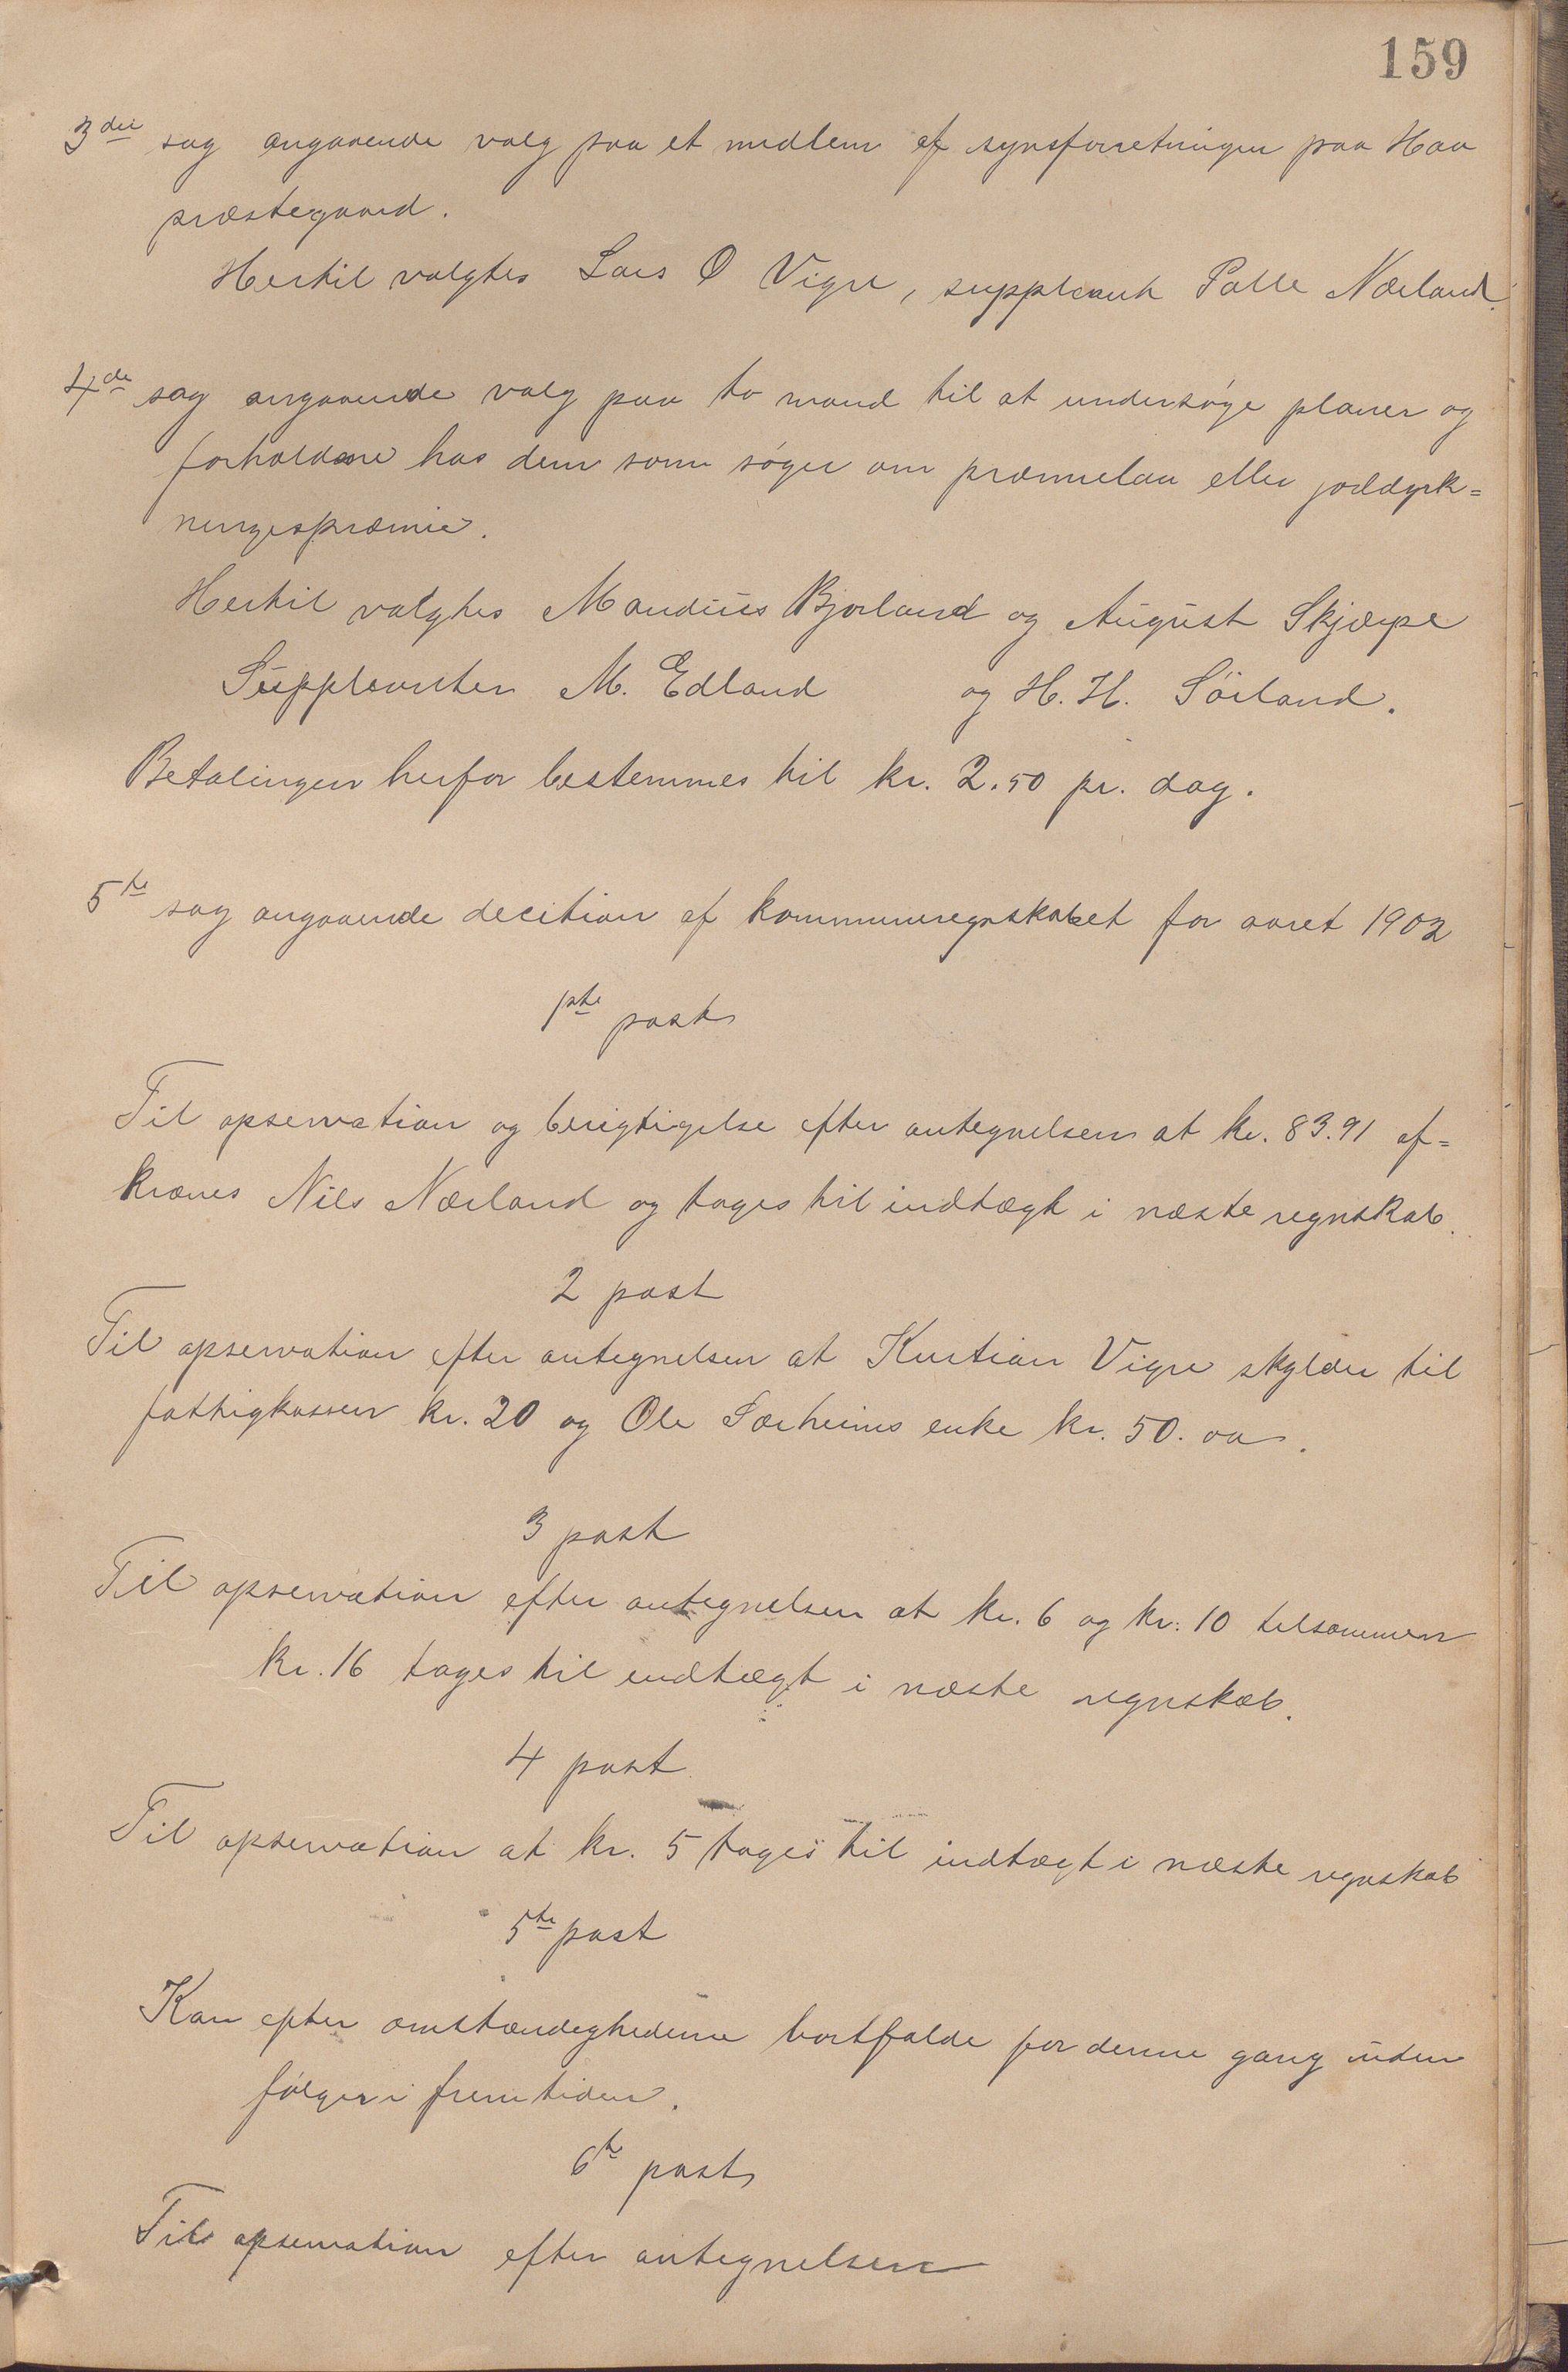 159
3die sag angaaende valg paa et medlem af synsforretningen paa Haa
præstegaard.
Hertil valgtes Lars O Vigre, suppleant Palle Nærland.
4de sag angaaende valg paa to mænd til at undersøge planer og
forholdene hos dem som søger om præmielaan eller jorddyrk=
ningspræmie.
Hertil valgtes Mandius Bjorland og August Skjæpe
Suppleanter M. Edland og H. H. Sörland.
Betalingen herfor bestemmes til kr. 2.50 pr. dag.
5te sag angaaende decition af kommuneregnskabet for aaret 1902
1ste post
Til opservation og berigtigelse efter antegnelsen at kr. 83.91 af=
kræves Nils Nærland og tages til indtægt i næste regnskab.
2 post
Til opservation efter antegnelsen at Kristian Vigre skylder til
fattigkassen kr. 20 og Ole Særheims enke kr. 50. oo.
3 post
Til opservation efter antegnelsen at kr. 6 og kr. 10 tilsammen
kr. 16 tages til indtægt i næste regnskab.
4 post
Til opservation at kr. 5 tages til indtægt i næste regnskab
5te post
Kan efter omstændighederne bortfalde for denne gang uden
følger i fremtiden.
6te post
Til opservation efter antegnelsen